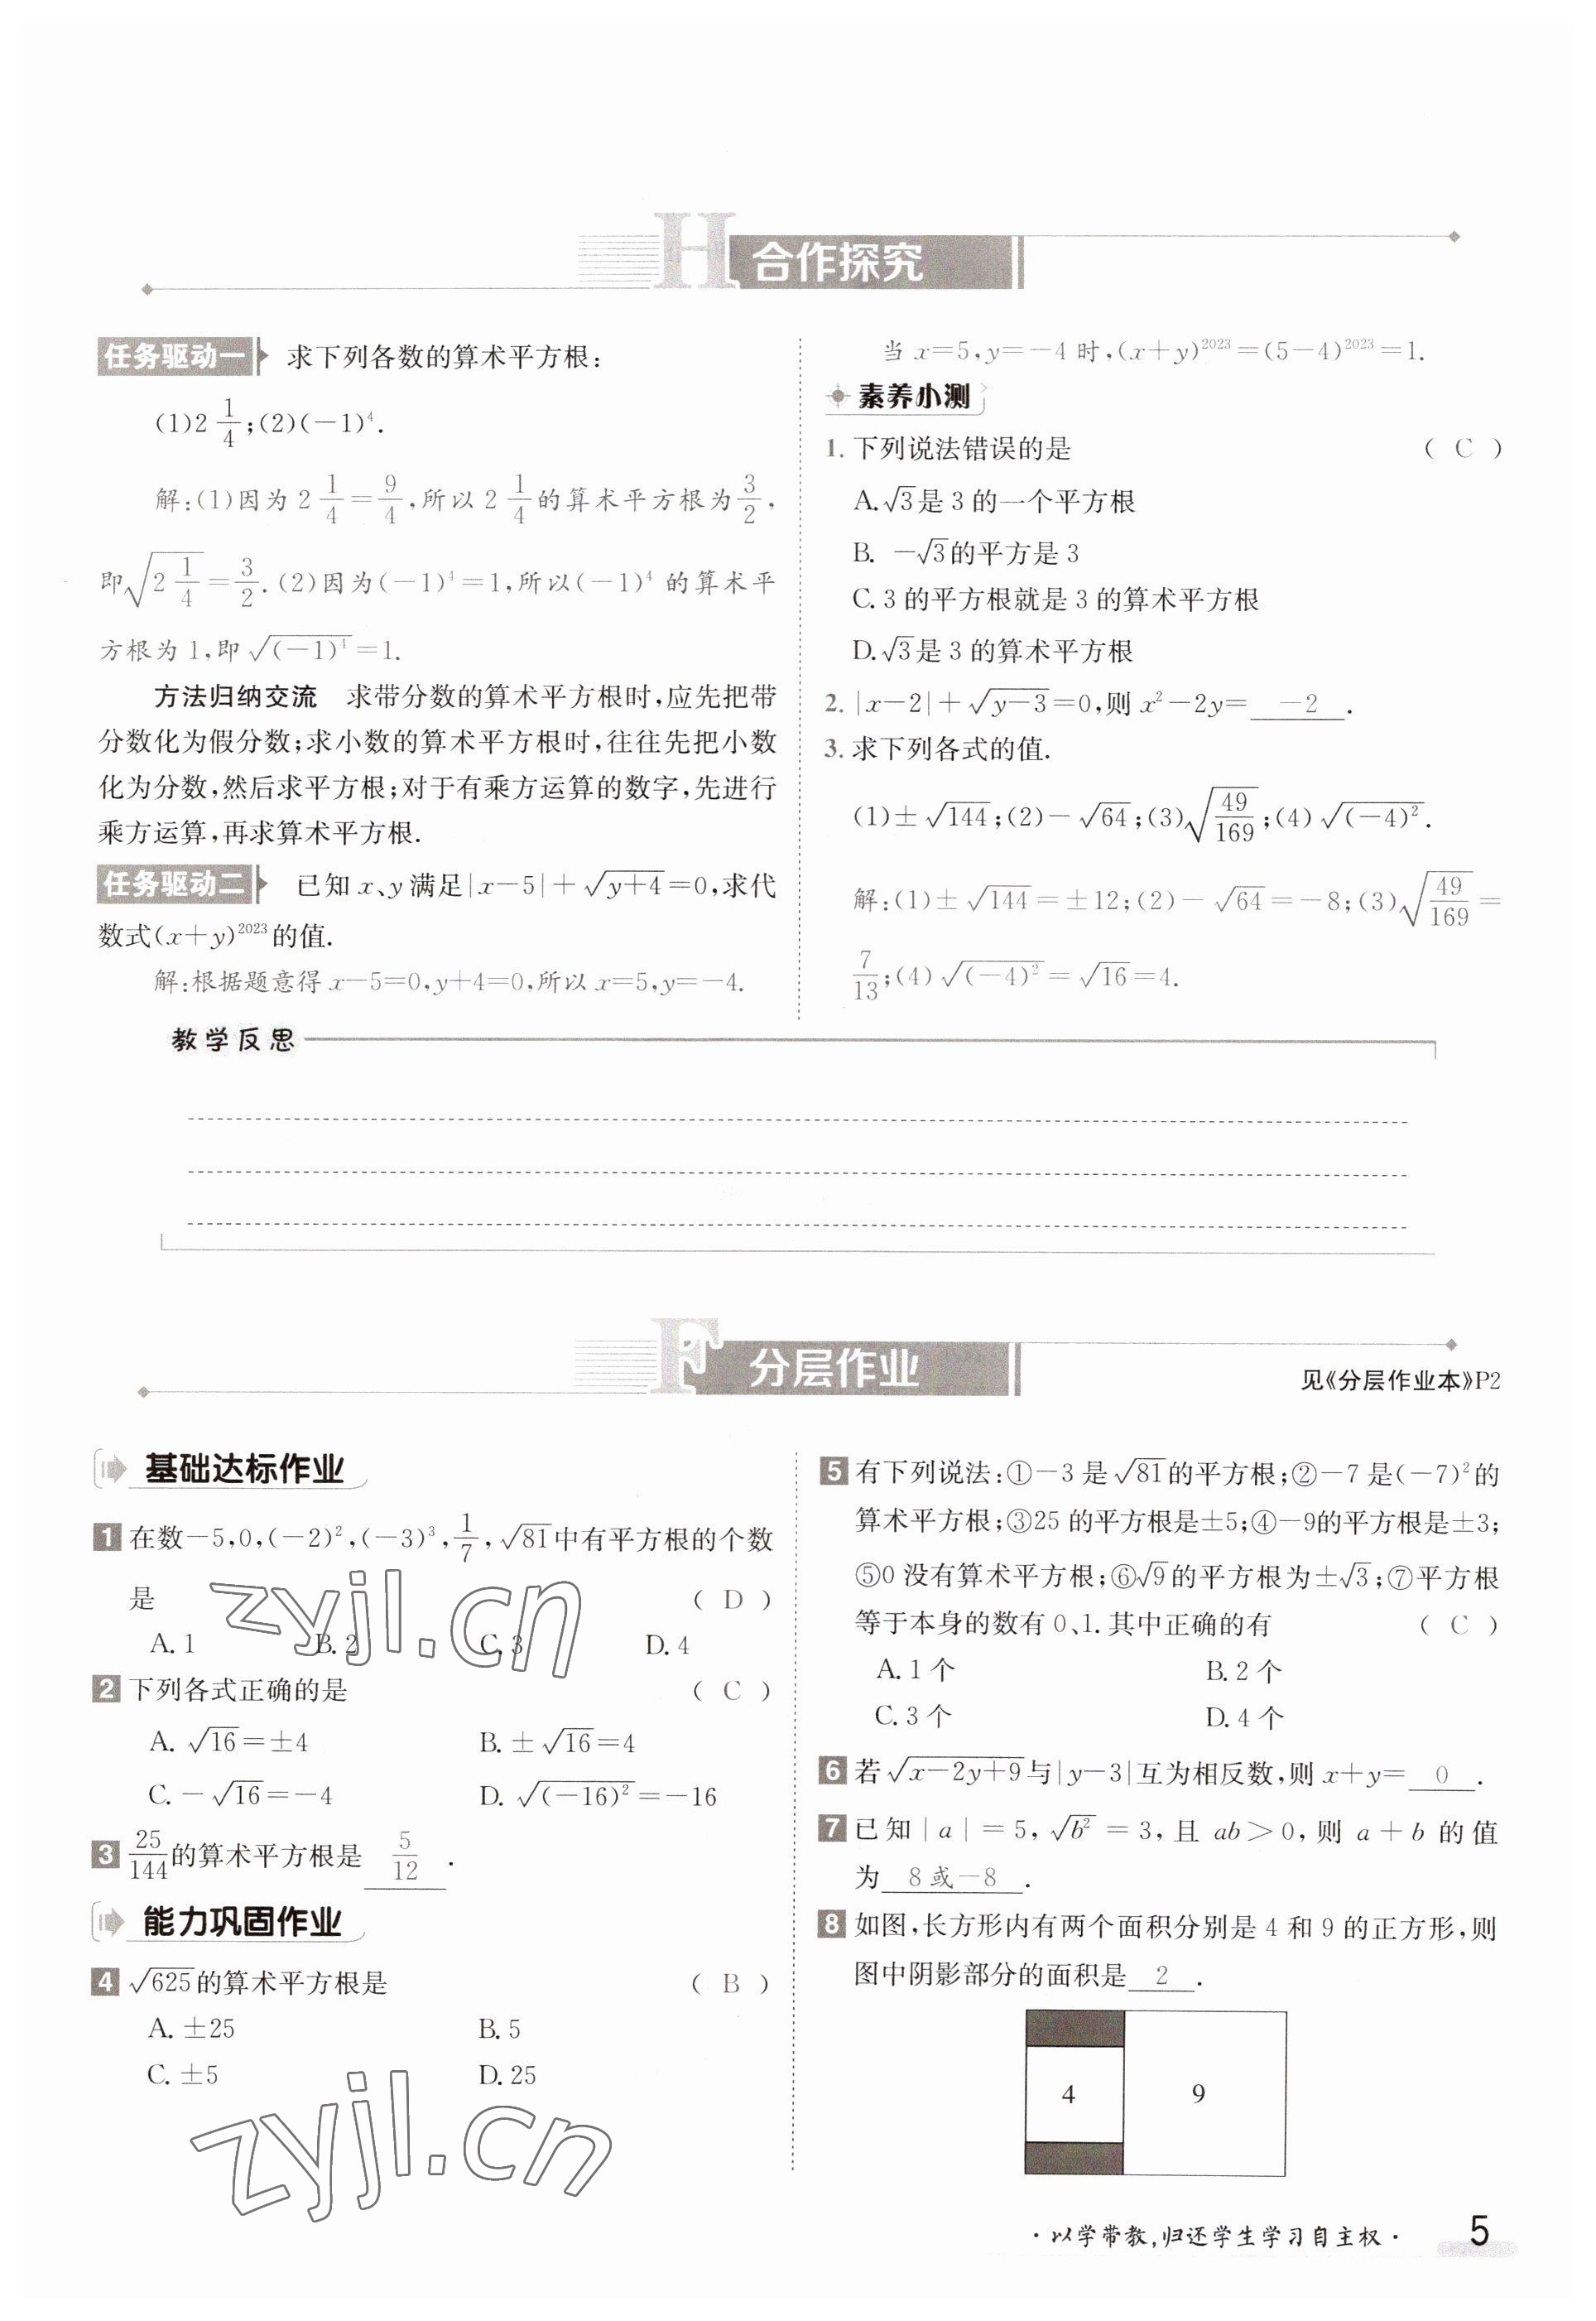 H 合作探究
任务驱动一 求下列各数的算术平方根:
(1)2 1/4;(2)(-1)⁴.
解:(1)因为 2 1/4 = 9/4,所以 2 1/4 的算术平方根为 3/2,
即√(2 1/4) = 3/2.(2)因为(-1)⁴=1,所以(-1)⁴ 的算术平
方根为 1,即 √((-1)⁴)=1.
方法归纳交流 求带分数的算术平方根时,应先把带
分数化为假分数;求小数的算术平方根时,往往先把小数
化为分数,然后求平方根;对于有乘方运算的数字,先进行
乘方运算,再求算术平方根.
任务驱动二 已知 x、y 满足|x-5|+√(y+4)=0,求代
数式(x+y)²⁰²³的值.
解:根据题意得 x-5=0,y+4=0,所以 x=5,y=-4.
当 x=5,y=-4 时,(x+y)²⁰²³=(5-4)²⁰²³=1.
素养小测
1. 下列说法错误的是 ( C )
A.√3是 3 的一个平方根
B. -√3的平方是 3
C. 3 的平方根就是 3 的算术平方根
D.√3是 3 的算术平方根
2. |x-2|+√(y-3)=0,则 x²-2y= -2 .
3. 求下列各式的值.
(1)±√144;(2)-√64;(3)√(49/169);(4)√((-4)²).
解:(1)±√144=±12;(2)-√64=-8;(3)√(49/169)=
7/13;(4)√((-4)²)=√16=4.
教学反思
F 分层作业
见《分层作业本》P2
基础达标作业
1 在数-5,0,(-2)²,(-3)³,1/7,√81中有平方根的个数
是 ( D )
A. 1 B. 2 C. 3 D. 4
2 下列各式正确的是 ( C )
A. √16=±4 B. ±√16=4
C. -√16=-4 D. √((-16)²)=-16
3 25/144的算术平方根是 5/12 .
能力巩固作业
4 √625的算术平方根是 ( B )
A. ±25 B. 5
C. ±5 D. 25
5 有下列说法:①-3 是√81的平方根;②-7 是(-7)²的
算术平方根;③25 的平方根是±5;④-9的平方根是±3;
⑤0 没有算术平方根;⑥√9的平方根为±√3;⑦平方根
等于本身的数有 0、1.其中正确的有 ( C )
A. 1 个 B. 2 个
C. 3 个 D. 4 个
6 若√(x-2y+9)与|y-3|互为相反数,则 x+y= 0 .
7 已知 |a|=5,√(b²)=3,且 ab>0,则 a+b 的值
为 8 或-8 .
8 如图,长方形内有两个面积分别是 4 和 9 的正方形,则
图中阴影部分的面积是 2 .
4 9
zyjl.cn
zyjl.cn
·以学带教,归还学生学习自主权· 5